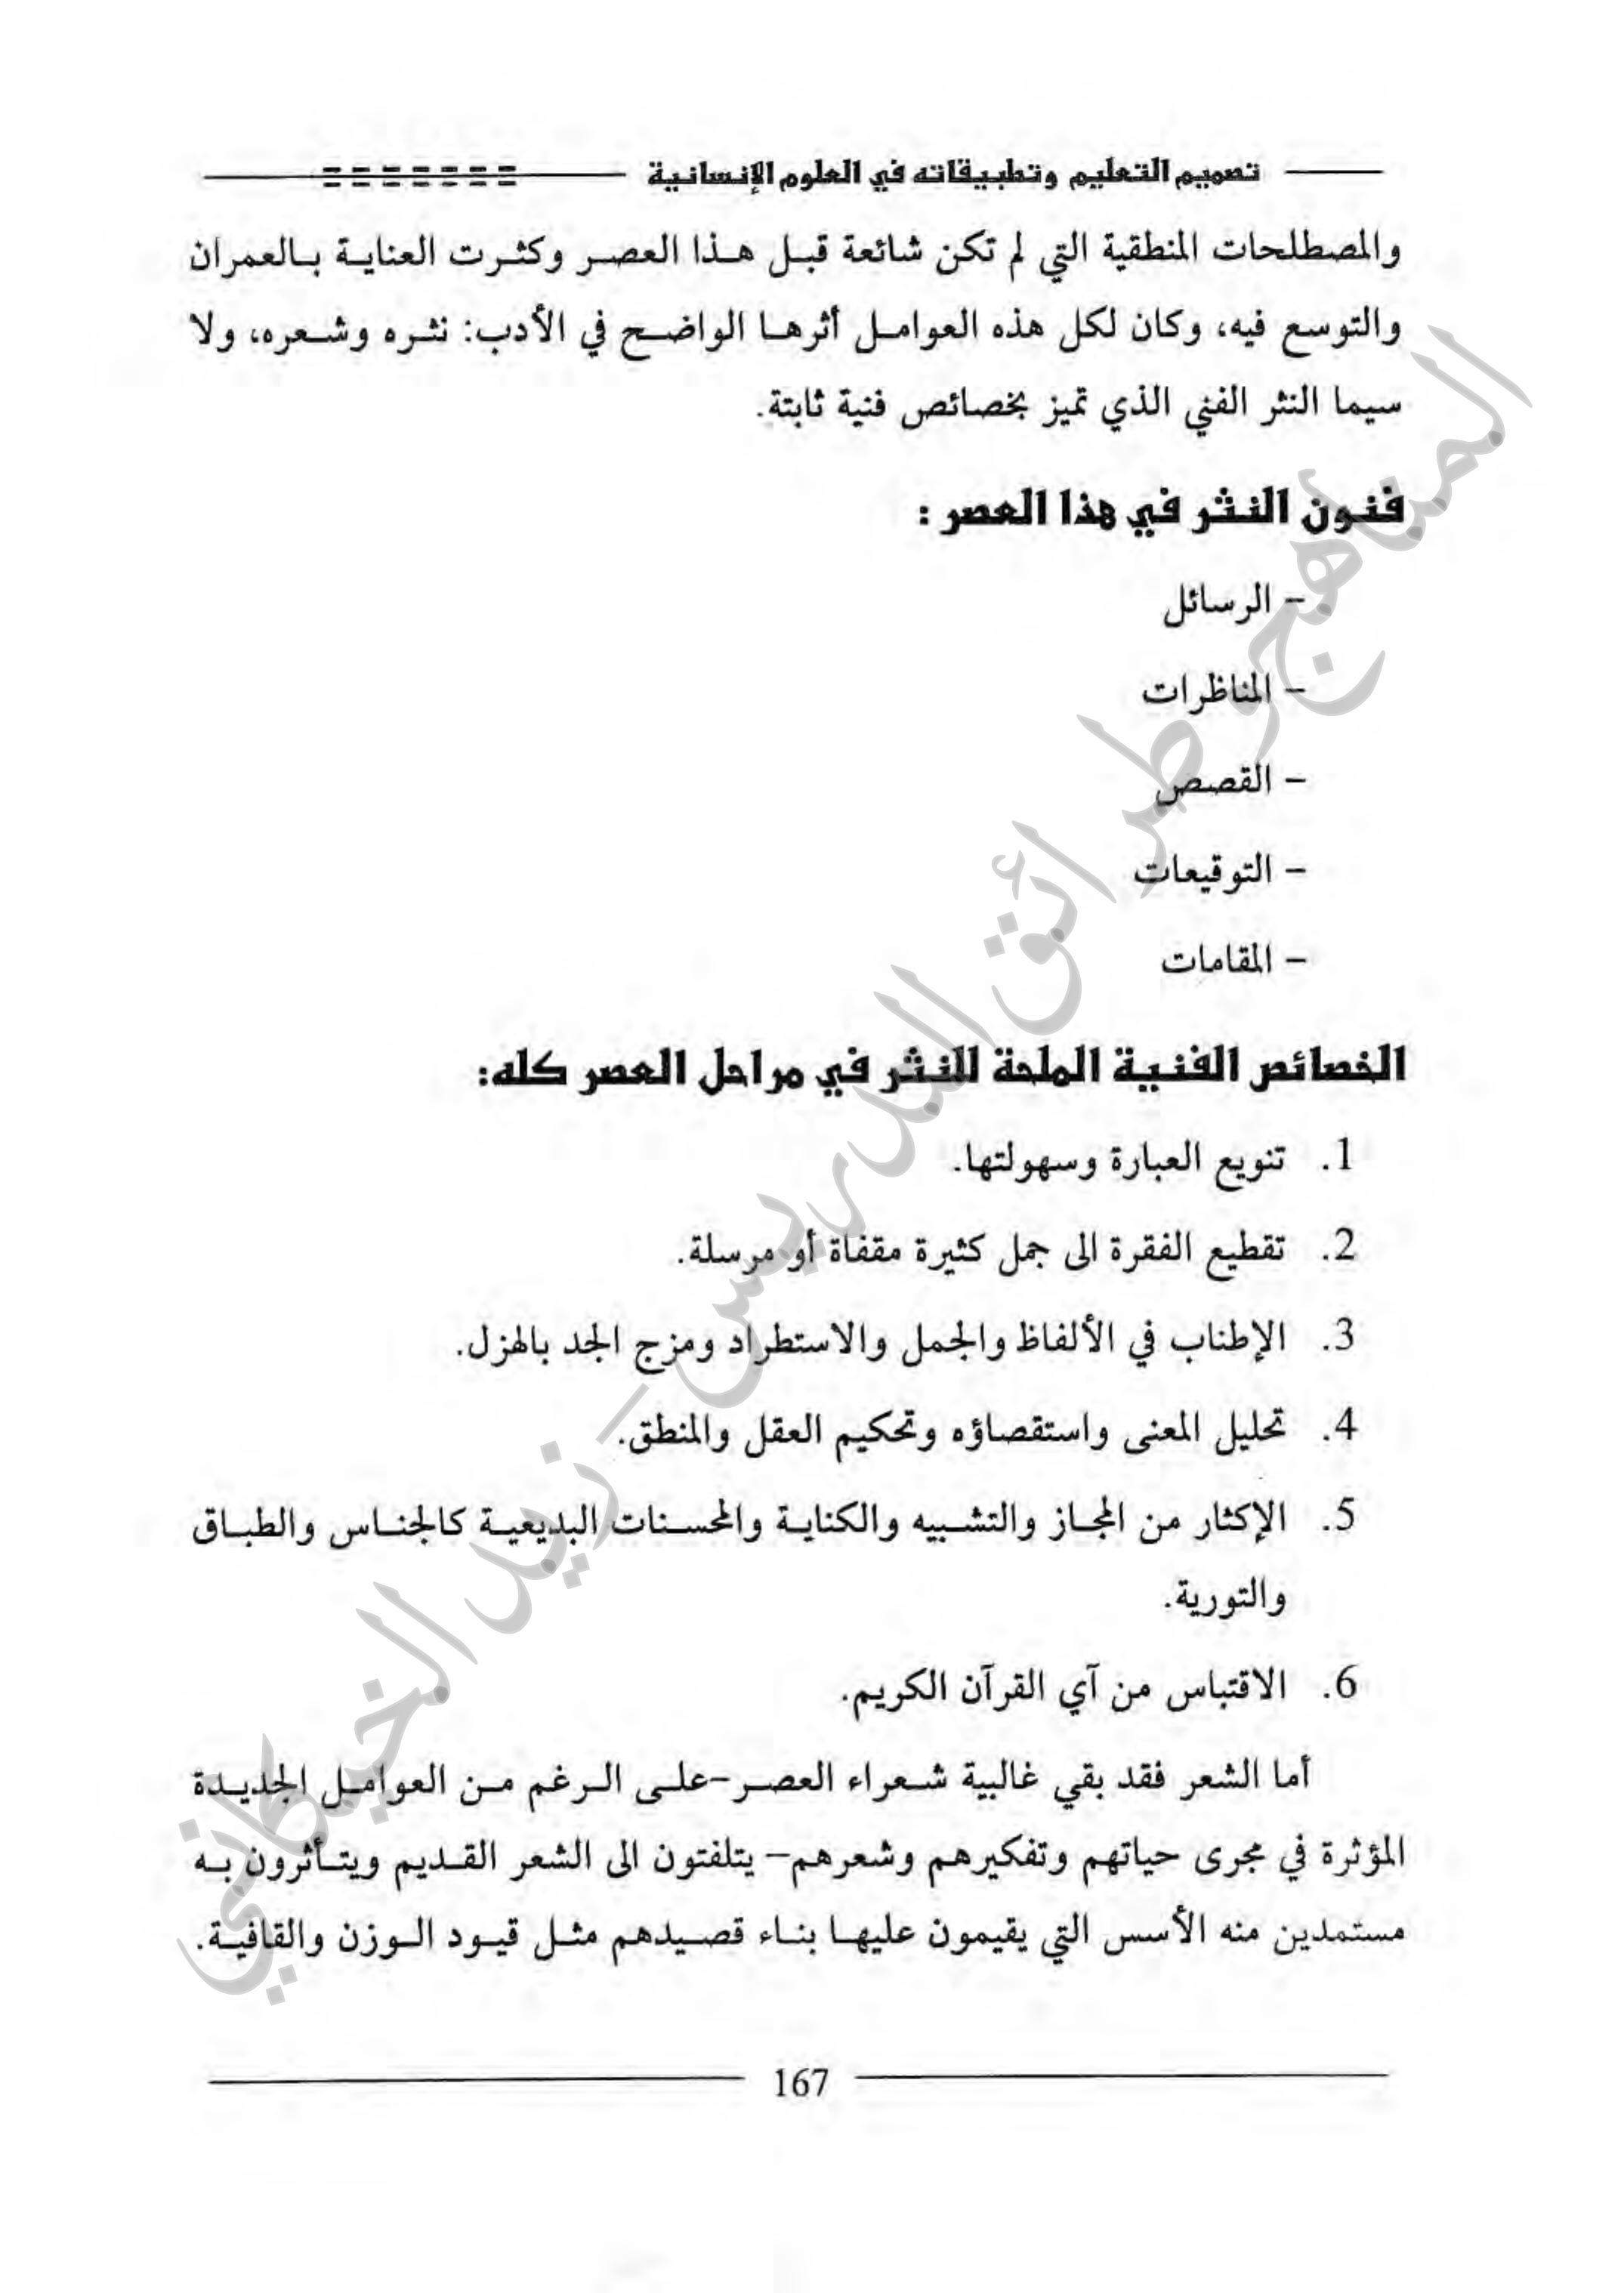 تصميم التعليم وتطبيقاته في العلوم الإنسانية
والمصطلحات المنطقية التي لم تكن شائعة قبل هذا العصر وكثرت العناية بالعمران
والتوسع فيه، وكان لكل هذه العوامل أثرها الواضح في الأدب: نثره وشعره، ولا
سيما النثر الفني الذي تميز بخصائص فنية ثابتة.
فنون النثر في هذا العصر :
- الرسائل
- المناظرات
- القصص
- التوقيعات
- المقامات
الخصائص الفنية الملحة للنثر في مراحل العصر كله:
1. تنويع العبارة وسهولتها.
2. تقطيع الفقرة الى جمل كثيرة مقفاة أو مرسلة.
3. الإطناب في الألفاظ والجمل والاستطراد ومزج الجد بالهزل.
4. تحليل المعنى واستقصاؤه وتحكيم العقل والمنطق.
5. الإكثار من المجاز والتشبيه والكناية والمحسنات البديعية كالجناس والطباق
والتورية.
6. الاقتباس من آي القرآن الكريم.
أما الشعر فقد بقي غالبية شعراء العصر-على الرغم من العوامل الجديدة
المؤثرة في مجرى حياتهم وتفكيرهم وشعرهم- يتلفتون الى الشعر القديم ويتأثرون به
مستمدين منه الأسس التي يقيمون عليها بناء قصيدهم مثل قيود الوزن والقافية.
167
المناهج وطرائق التدريس - زيد الخيكاني